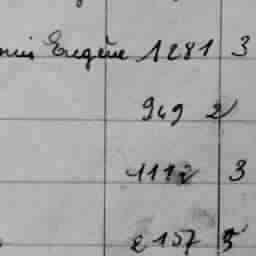 Eugène 1281 3
949 2
1112 3
2157 5